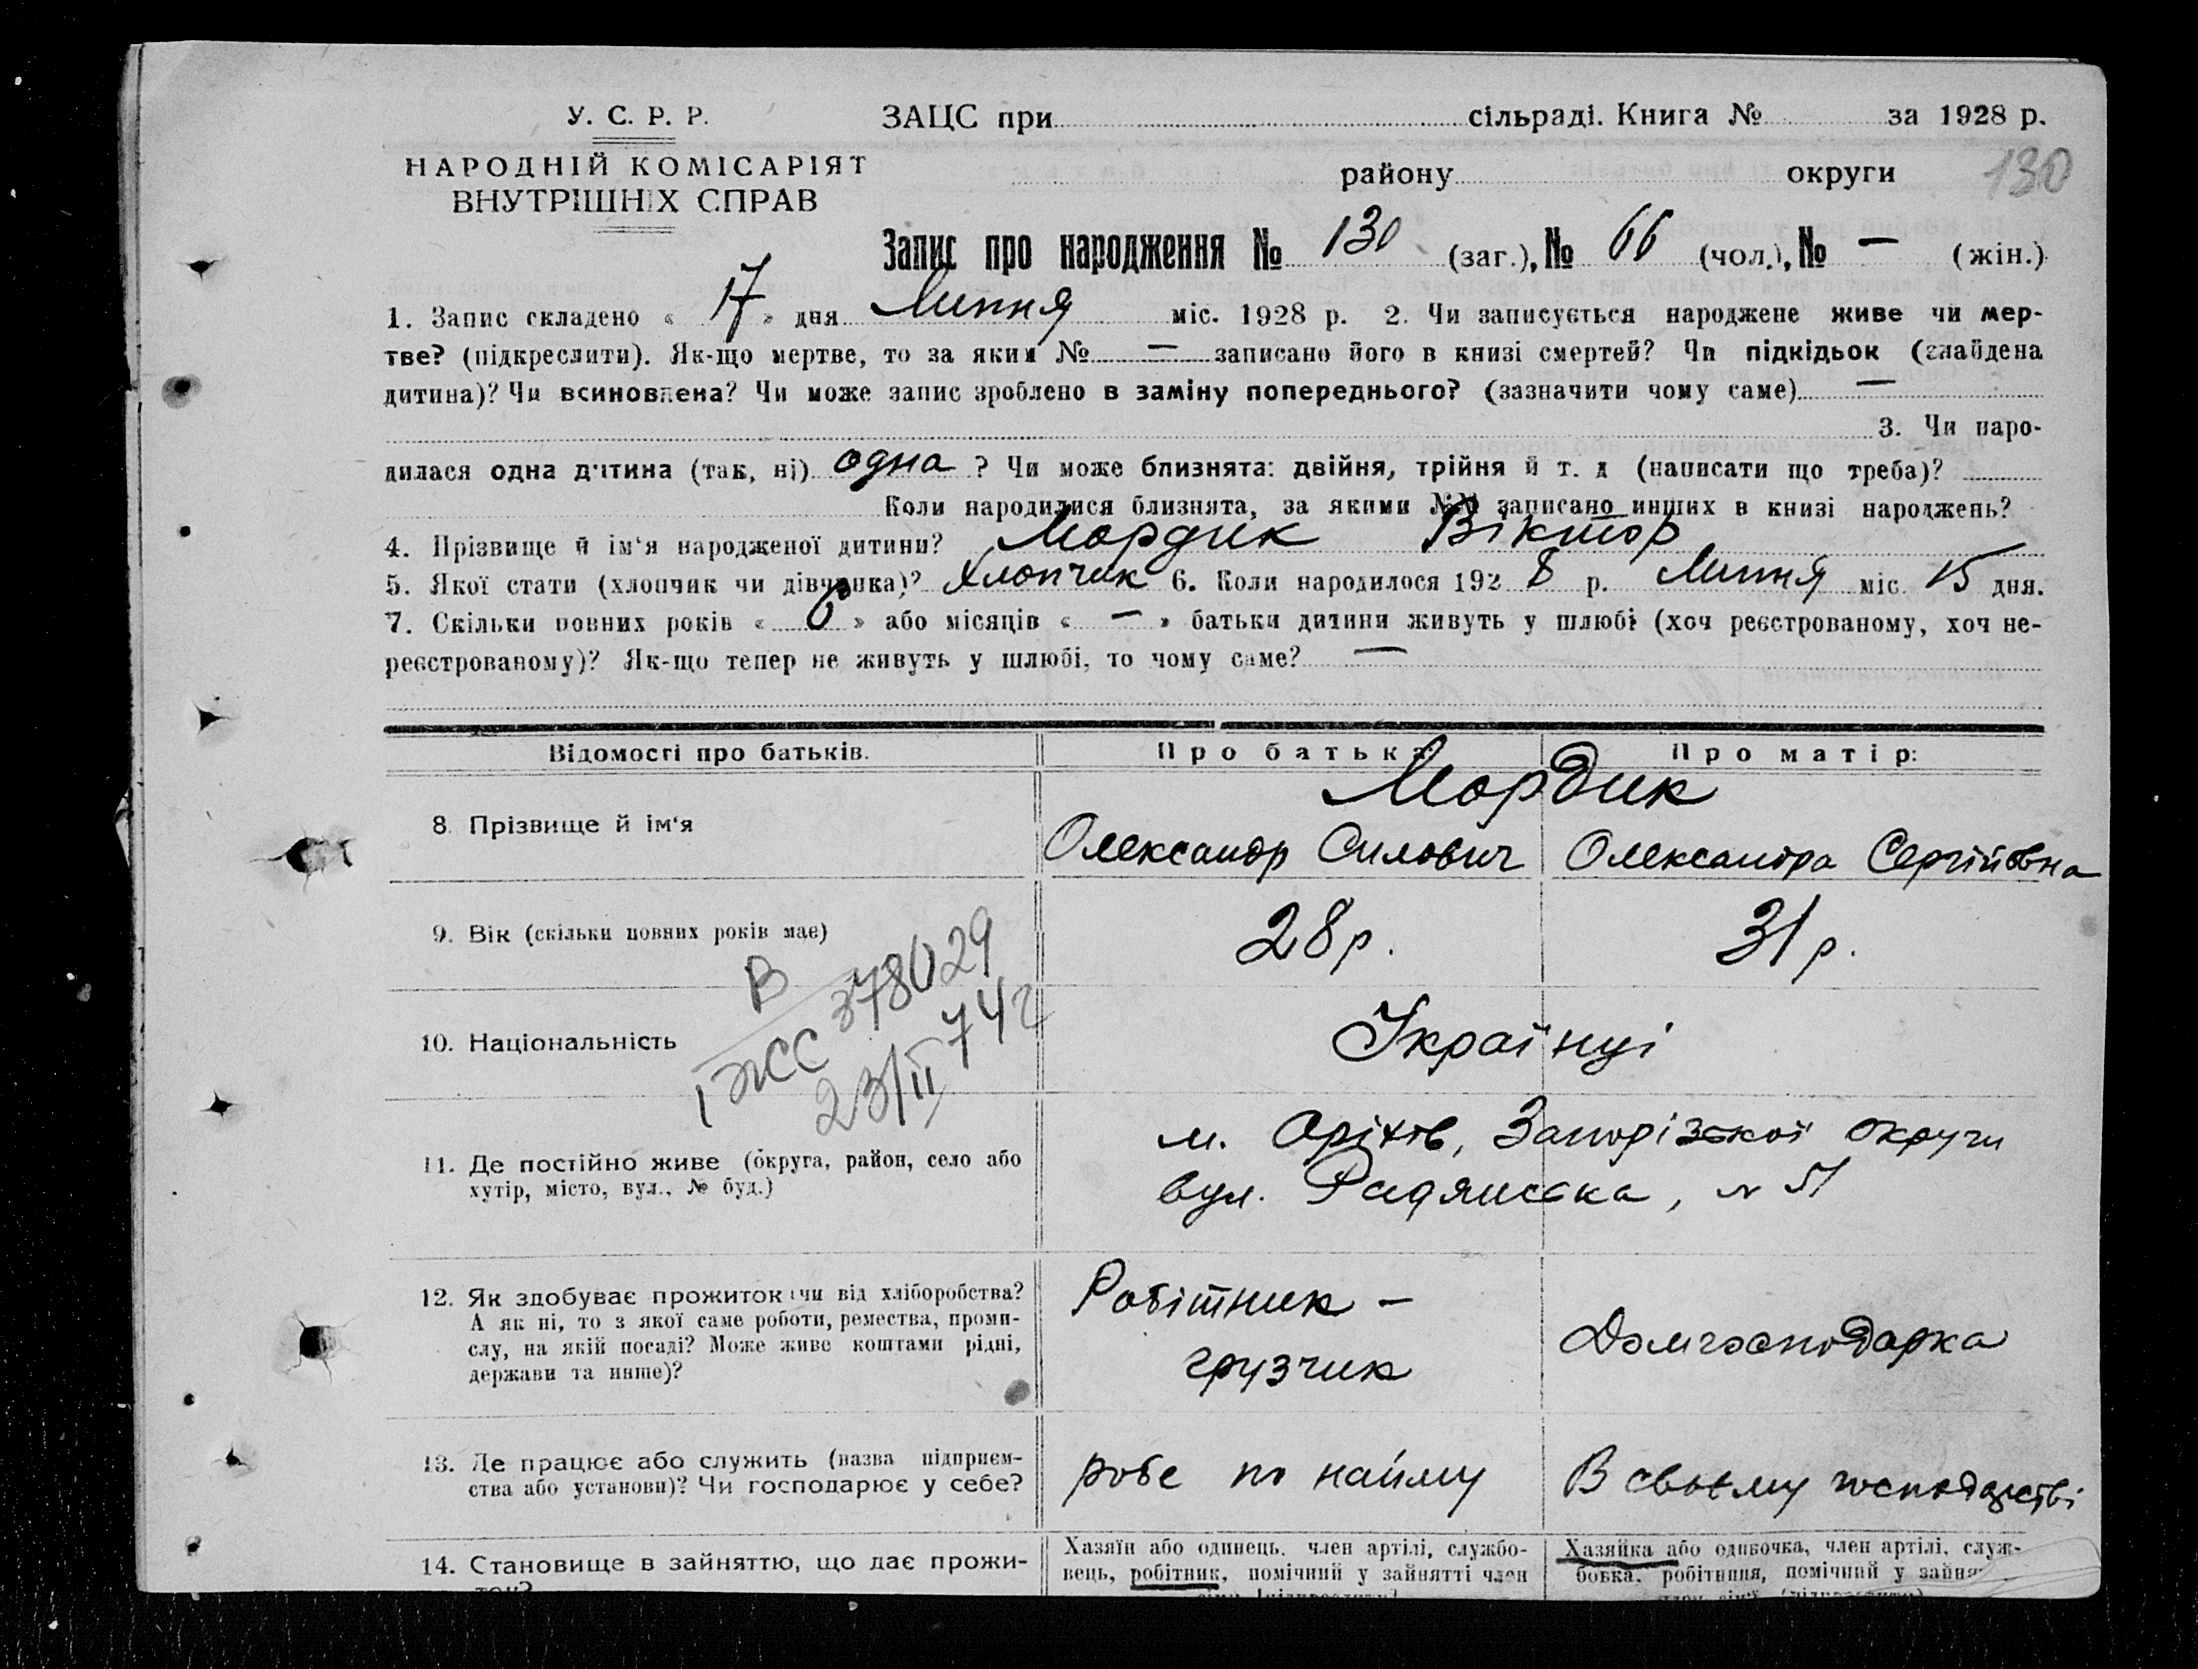 У. С. Р. Р.
НАРОДНІЙ КОМІСАРІЯТ
ВНУТРІШНІХ СПРАВ
ЗАЦС при сільраді. Книга № за 1928 р.
району округи
130
Запис про народження № 130 (заг.), № 66 (чол.), № — (жін.)
1. Запис складено « 17 » дня Липня міс. 1928 р. 2. Чи записується народжене живе чи мер-
тве? (підкреслити). Як-що мертве, то за яким № — записано його в книзі смертей? Чи підкідьок (знайдена
дитина)? Чи всиновлена? Чи може запис зроблено в заміну попереднього? (зазначити чому саме) —
3. Чи наро-
дилася одна дитина (так, ні) одна ? Чи може близнята: двійня, трійня й т. д (написати що треба)?
Коли народилися близнята, за якими №№ записано инших в книзі народжень?
4. Прізвище й ім'я народженої дитини? Мордик Віктор
5. Якої стати (хлопчик чи дівчинка)? Хлопчик 6. Коли народилося 192 8 р. Липня міс. 15 дня.
7. Скільки повних років « 6 » або місяців « — » батьки дитини живуть у шлюбі (хоч реєстрованому, хоч не-
реєстрованому)? Як-що тепер не живуть у шлюбі, то чому саме? —
Відомості про батьків. Про батька: Про матір:
Мордик
8. Прізвище й ім'я Олександр Силович Олександра Сергійовна
9. Вік (скільки повних років має) 28 р. 31 р.
В
І ЖС 378029
23/II 74 г
10. Національність Українці
11. Де постійно живе (округа, район, село або
хутір, місто, вул., № буд.)
м. Оріхів, Запорізської округи
вул. Радянська, № 51
12. Як здобуває прожиток: чи від хліборобства?
А як ні, то з якої саме роботи, ремества, проми-
слу, на якій посаді? Може живе коштами рідні,
держави та инше)?
Робітник —
грузчик
Домгосподарка
13. Де працює або служить (назва підприєм-
ства або установи)? Чи господарює у себе?
робе по найму В своєму господарстві
14. Становище в зайняттю, що дає прожи-
ток?
Хазяїн або одинець, член артілі, службо-
вець, робітник, помічний у зайнятті член
Хазяйка або одиночка, член артілі, служ-
бовка, робітниця, помічний у зайня